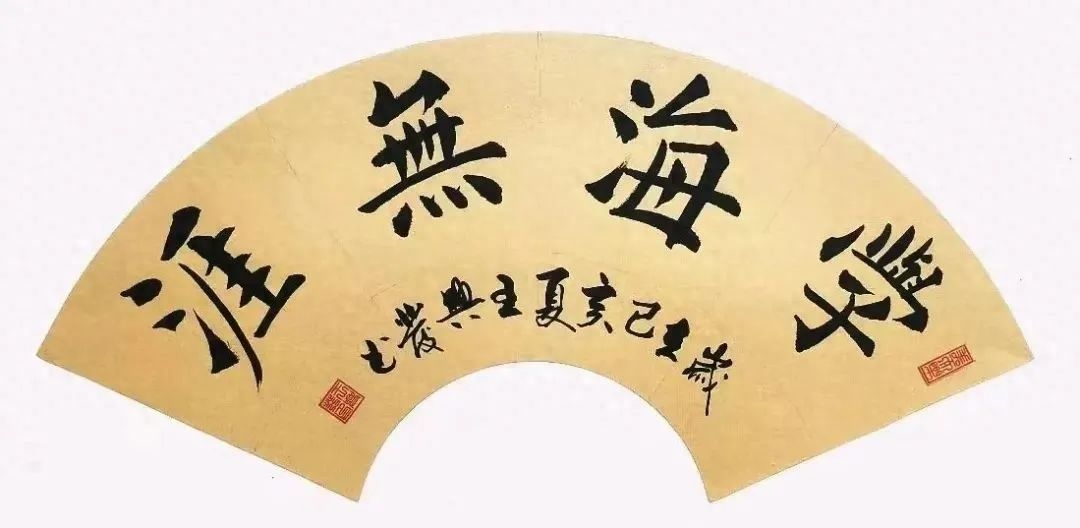 學海無涯
歲在己亥夏王典發书